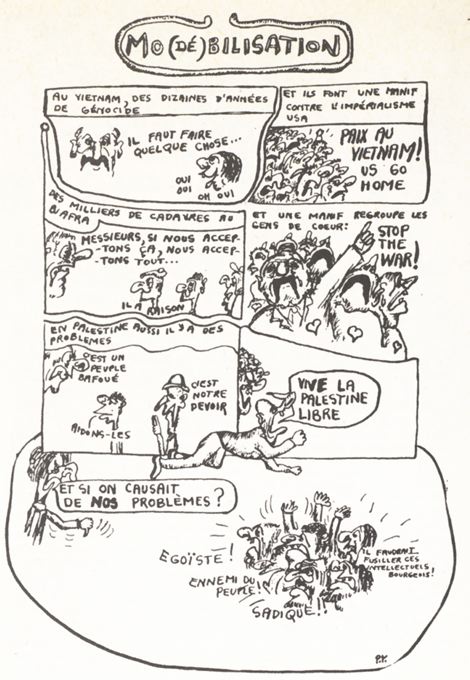 MO(DÉ)BILISATION
AU VIETNAM, DES DIZAINES D'ANNÉES
DE GÉNOCIDE
IL FAUT FAIRE
QUELQUE CHOSE...
OUI
OUI
OH OUI
ET ILS FONT UNE MANIF
CONTRE L'IMPÉRIALISME
USA
PAIX AU
VIETNAM!
US GO
HOME
DES MILLIERS DE CADAVRES AU
BIAFRA
MESSIEURS, SI NOUS ACCEP-
-TONS ÇA, NOUS ACCEP-
-TONS TOUT...
IL A RAISON
ET UNE MANIF REGROUPE LES
GENS DE COEUR:
STOP
THE
WAR!
EN PALESTINE AUSSI IL Y A DES
PROBLÈMES
C'EST UN
PEUPLE
BAFOUÉ
AIDONS-LES
C'EST
NOTRE
DEVOIR
VIVE LA
PALESTINE
LIBRE
ET SI ON CAUSAIT
DE NOS PROBLÈMES?
EGOÏSTE!
ENNEMI DU
PEUPLE!
SADIQUE!!
IL FAUDRAIT
FUSILLER CES
INTELLECTUELS
BOURGEOIS!
P.K.